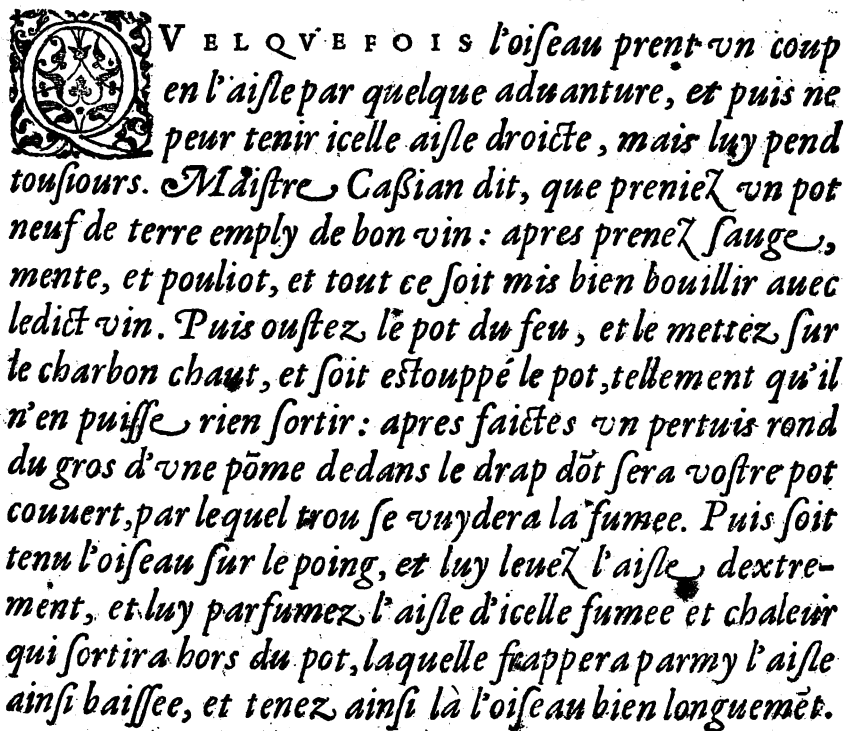 QVELQVEFOIS l'oiſeau prent vn coup
en l'aiſle par quelque aduanture, et puis ne
peut tenir icelle aiſle droicte, mais luy pend
touſiours. Maiſtre Caßian dit, que preniez vn pot
neuf de terre emply de bon vin : apres prenez ſauge,
mente, et pouliot, et tout ce ſoit mis bien bouillir auec
ledict vin. Puis ouſtez le pot du feu, et le mettez ſur
le charbon chaut, et ſoit eſtouppé le pot, tellement qu'il
n'en puiſſe rien ſortir : apres faictes vn pertuis rond
du gros d'vne põme dedans le drap dõt ſera voſtre pot
couuert, par lequel trou ſe vuydera la fumee. Puis ſoit
tenu l'oiſeau ſur le poing, et luy leuez l'aiſle dextre-
ment, et luy parfumez l'aiſle d'icelle fumee et chaleur
qui ſortira hors du pot, laquelle frappera parmy l'aiſle
ainſi baiſſee, et tenez ainſi là l'oiſeau bien longuemẽt.